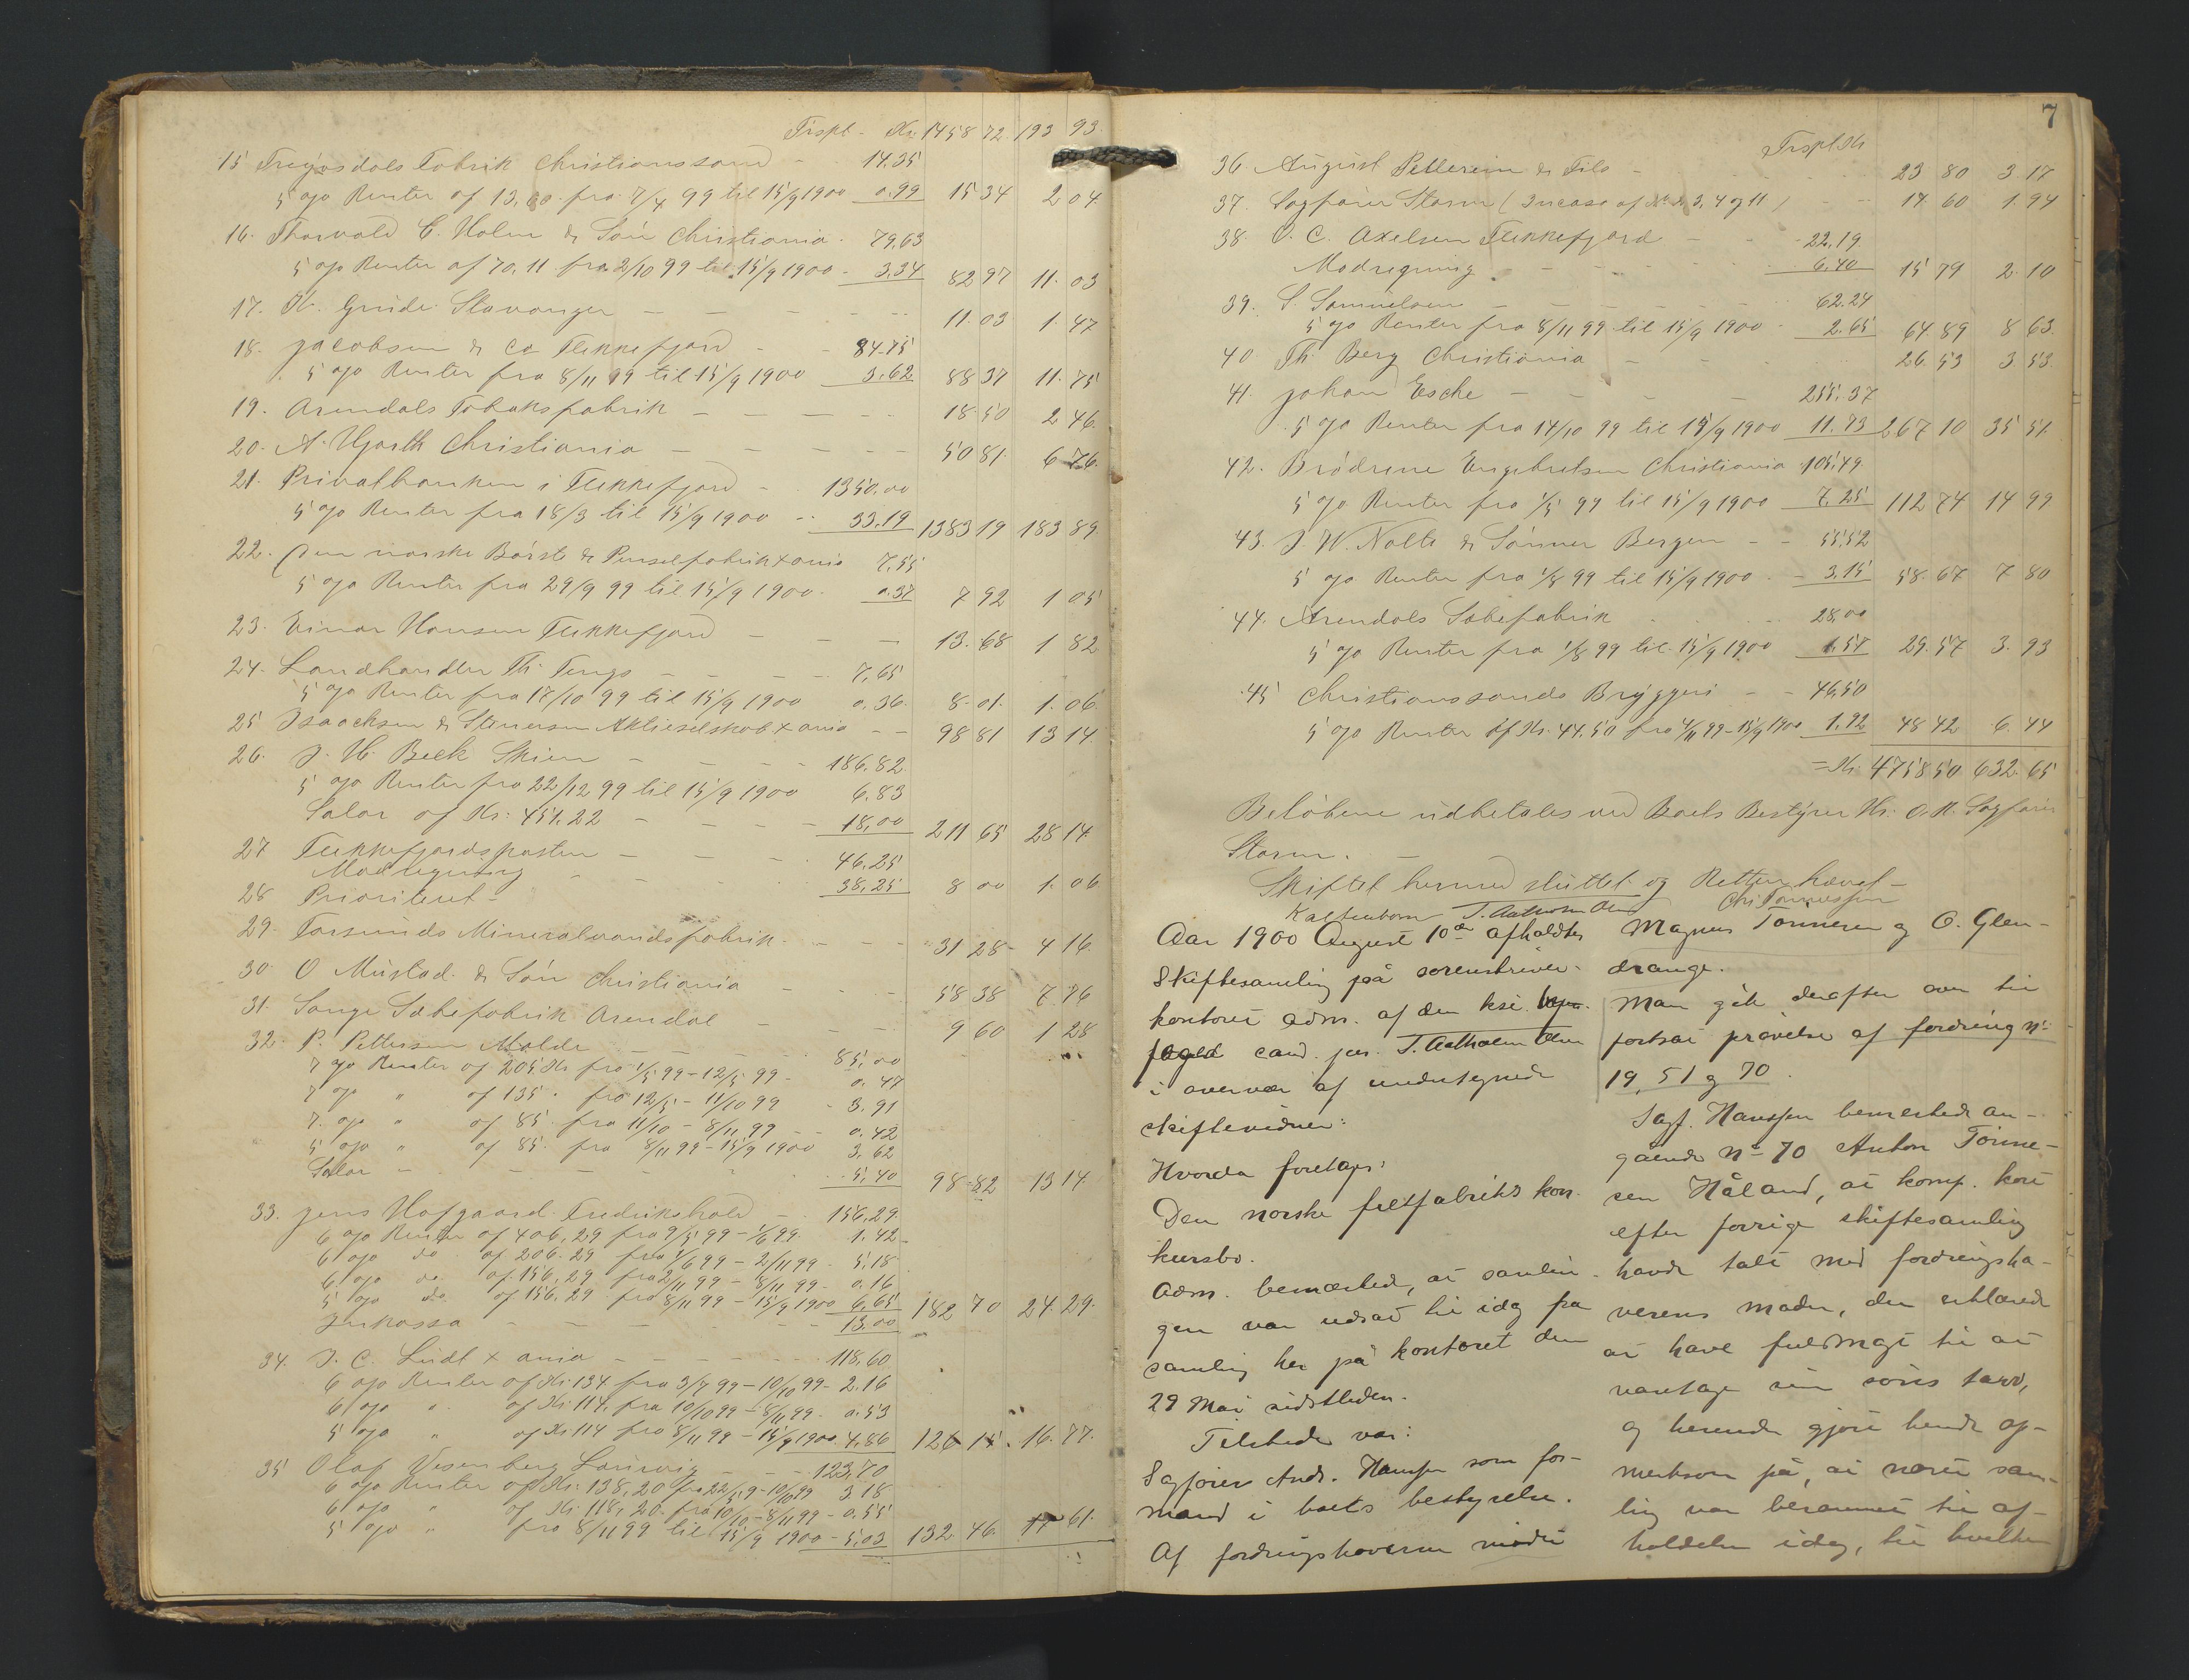 Trspt - Kr. 1458 72. 193 93.
15 Fabrik Christianssand - 14.35
5 o/o Renter af 13,60 fra 7/4 99 til 15/9 1900 0.99 15 34 2 04.
16. Thorvald C. Holm & Sön Christiania. 79,63
5 o/o Renter af 70.11 fra 2/10 99 til 15/9 1900 - 3.34 82 97 11. 03
17. K. Grude Stavanger - - - - - 11. 03 1. 47
18. Jacobsen & Co Flekkefjord - - 84.75
5 o/o Renter fra 8/11 99 til 15/9 1900 3.62 88 37 11. 75
19. Arendals Tobaksfabrik - - - - - 18. 50 2 46.
20. A. Hjorth Christiania - - - - - 50 81. 6 76.
21. Privatbanken i Flekkefjord - - 1350.00
5 o/o Renter fra 18/3 til 15/9 1900 - - 33.19 1383 19 183 89.
22. Den norske Börste & Penselfabrik Xania 7.55
5 o/o Renter fra 29/9 99 til 15/9 1900 - 0.37 7 92 1 05
23. Einar Hansen Flekkefjord - - - 13. 68 1 82
24. Landhandler Th. Tengs - - - - 7,65
5 o/o Renter fra 17/10 99 til 15/9 1900 0.36. 8. 01. 1. 06
25 Isaachsen & Aktieselskab Xania - - 98 81 13 14.
26. J. H. Beck Skien - - - - 186.82.
5 o/o Renter fra 22/12 99 til 15/9 1900 6.83
Salær af Kr: 451.22 - - - - 18,00 211 65 28 14.
27 Flekkefjordsposten - - - - 46.25
Modregning - - - 38,25 8 00 1. 06
28 Prioriteret -
29. Farsunds Mineralvandsfabrik. - - - 31 28 - 4 16.
30. O Mustad & Sön Christiania - - - 58 38 7. 76
31. Songe Sæbefabrik Arendal - - - 9 60 1 28
32. P. Pettersen Molde - - - - 85,00
7 o/o Renter af 205 Kr fra 1/5 99 - 12/5 99 - 0.47
7 o/o " af 135. fra 12/5 - 11/10 99 - 3.91
7. o/o " af 85. fra 11/10 - 8/11 99 - - 0.42
5 o/o " af 85. fra 8/11 99 - 15/9 1900 3,62
Salær - - - - - 5,40 98 = 82 13 14
33. Jens Hofgaard Fredrikshald - - 156,29
6 o/o Renter af 406,29 fra 9/5 99 - 1/6 99. 1.42 -
6 o/o do af 206.29 fra 1/6 99 - 2/11 99 - 5,18.
6 o/o do af 156,29 fra 2/11 99 - 8/11 99 - 0.16
5 o/o do af 156,29 fra 8/11 99 - 15/9 1900 6,65
Inkasso - - - - - 13.00 182 70 24. 29.
34. J. C. Xania - - - - 118,60
6 o/o Renter af Kr. 134 fra 3/7 99 - 10/10 99 - 2.16
6 o/o " af Kr. 114, fra 10/10 99 - 8/11 99 - 0.53
5 o/o " af Kr 114 fra 8/11 99 - 15/9 1900 4,86 126 15. 16. 77.
35 Olaf Vesenberg Laurvig - - - 123,70
6 o/o Renter af Kr. 138,20 fra - 10/10 99 3 18
6 o/o " af Kr. 118,20. fra 10/10 - 8/11 99 - 0.55
5 o/o " fra 8/11 99 til 15/9 1900 - 5,03 132 46. 17 61.
7
Trspt Kr
36 August Pellerin & Fils - - - 23 80 3. 17
37. Sagfører Storm (Incasso af No 2, 3, 4 og 11) - - 14 60 1. 94
38. O. C. Axelsen Flekkefjord - - 22,19.
Modregning - - - - 6.40 15 79 2. 10
39. S. Samuelsen - - - - - 62.24
5 o/o Renter fra 8/11 99 til 15/9 1900 - 2.65 64. 89 8 63.
40 Th. Berg Christiania - - - 26. 53 3 53.
41. Johan Esche - - - - 255.37
5 o/o Renter fra 14/10 99 til 15/9 1900 11.73 267 10 35 51.
42. Brödrene Engebretsen Christiania 105,49
5 o/o Renter fra 1/5 99 til 15/9 1900 7.25 112 74 14 99
43. J. W. Nolte & Sönner Bergen - - 55,52
5 o/o Renter fra 1/8 99 til 15/9 1900 - - 3.15 58. 67 7 80
44. Arendals Sæbefabrik - - 28,00
5 o/o Renter fra 1/8 99 til 15/9 1900 1.57 29. 57 3. 93
45 Christianssands Bryggeri - - 46,50
5 o/o Renter af Kr. 44.50 fra 4/11 99 - 15/9 1900 1.92 48 42 6. 44
= Kr: 4758 50 632. 65
Belöbene udbetales ved Boets Bestyrer Hr. O. R. Sagförer
Storm. -
Skiftet hermed sluttet og Retten hævet -
Kaltenborn T. Aatholm Olsen Chr Tönnessen
Aar 1900 August 10de afholdtes
skiftesamling på sorenskriver-
kontoret adm. af den kst. byen.
foged cand. jur. T. Aatholm Olsen
i overvær af undertegnede
skiftevidner:
Hvorda foretages:
Den norske filtfabriks kon-
kursbo.
Adm. bemærkede, at samlin-
gen var udsat til idag fra
samling her på kontoret den
29 Mai sidstleden.
Tilstede var:
Sagförer Andr. Hanssen som for-
mand i boets bestyrelse.
Af fordringshaverne mödte
Magnus Tönnesen og O. Glen-
drange.
Man gik derefter over til
fortsat prövelse af fordring No
19, 51 og 70.
Sagf. Hanssen bemerkede an-
gående No 70 Anton Tönne-
sen Håland, at komp. kort
efter forrige skiftesamling
havde talt med fordringsha-
verens moder, der erklærede
at have fuldmagt til at
varetage sin söns tarv,
og herunder gjort hende op-
merksom på, at næste sam-
ling var berammet til af-
holdelse idag, til hvilken